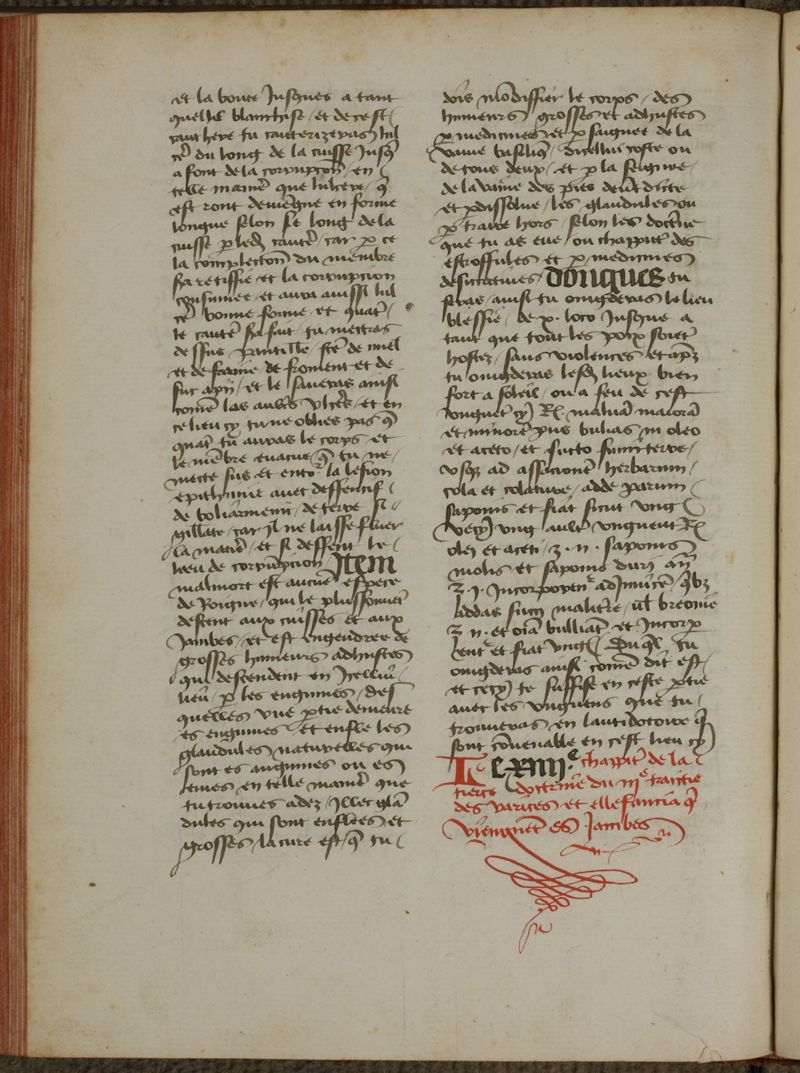 et la boute Jusques a tant
quelle blanchisse / et de cest
cauthere tu cauterizeras lul
cere du long de la cuisse Jusqs
a font de la corrupcion / en
telle maniere que lulcere / q̄
est ront deviegne en forme
longue selon se long de la
cuisse p led cautere / car p ce
la complection du membre
sa retiffie et la corrupcion
consumee et aura aussi lul
cere bonne forme / et quant
le cautere sera fait / tu mettras
de ssus / fte de miel
et de farine de froment et de
suc apii / et le laveras ainsi
come les autres ulceres / et en
ce lieu cy tu ne oblies pas q̄
quant tu auras le corps et
le membre evacue q̄ tu ne
mecte sus et entor la lesion
epithime avec deffensif
de boliarmeni / de terre si
gillate / car Jl ne laisse fluer
la matiere / et si deffent le
lieu de corrupcion Item
malmort est aucune espece
de Roigne / qui le plus souvent
descent aux cuisses et aux
Jambes / et est engendree de
grosses humeurs adhustes
qui descendent en Jcelluy
lieu / p les enguines / des
quelles une ptie demeure
es enguines et enfle les
glandules naturelles qui
sont es anguines ou es
en telle maniere que
tu trouves adez / Jllec glan
dules qui sont enflees et
grosses / la cure est / q̄ tu
dois mondiffier le corps / des
humeurs grosses et adhustes
p medicines et p saignee de la
vaine basilique / dicellui coste ou
de tous deux / et p la seignie
de la vaine des pies
et p dissolue / les glandules ou
p traire hors / selon les doctrine
que tu as eue ou chappitre des
escroffules et p medicines
desiccatives / donques tu
feras / ainsi tu oingderas le lieu
blessie / de p. loco Jusque a
tant que tout les porz soient
hostez / sans violences et apz
tu oingderas lesd lieux bien
fort a soleil / ou a feu de cest
onguet cy Rx malvam maiorem
et minorem prius bulias in oleo
et aceto / et succo fumiterre /
usqz ad assacionem herbarum /
cola et colature / adde parum
saponis et fiat sicut ung
Vecy ung aultre onguent Rx
olei et aceti / ʒ . ii . saponis
molis et saponis duri an̄
ʒ j. Jncorporentur ad Jnvicem qbz
addas succi malicie / ul brionie
ʒ ii . et oia bulliant et Jncorp
entur et fiat ungt / Duql tu
oingderas ainsi come dit est /
et cecy te suffise en ceste ptie
avec les unguens que tu
trouveras en lantidotaire q̄
sont convenable en cest lieu cy
Le xiiiie chappitre de la
tierce doctrine du iiie traictie
des varices et ellefancia q̄
viengnent es Jambes